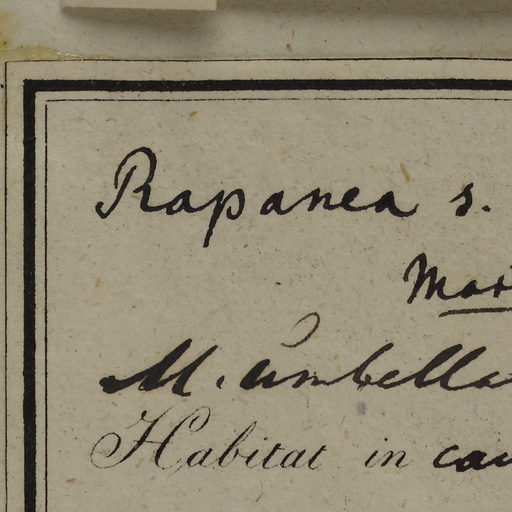 Rapanea s.
Mar
M. umbella
Habitat in cau